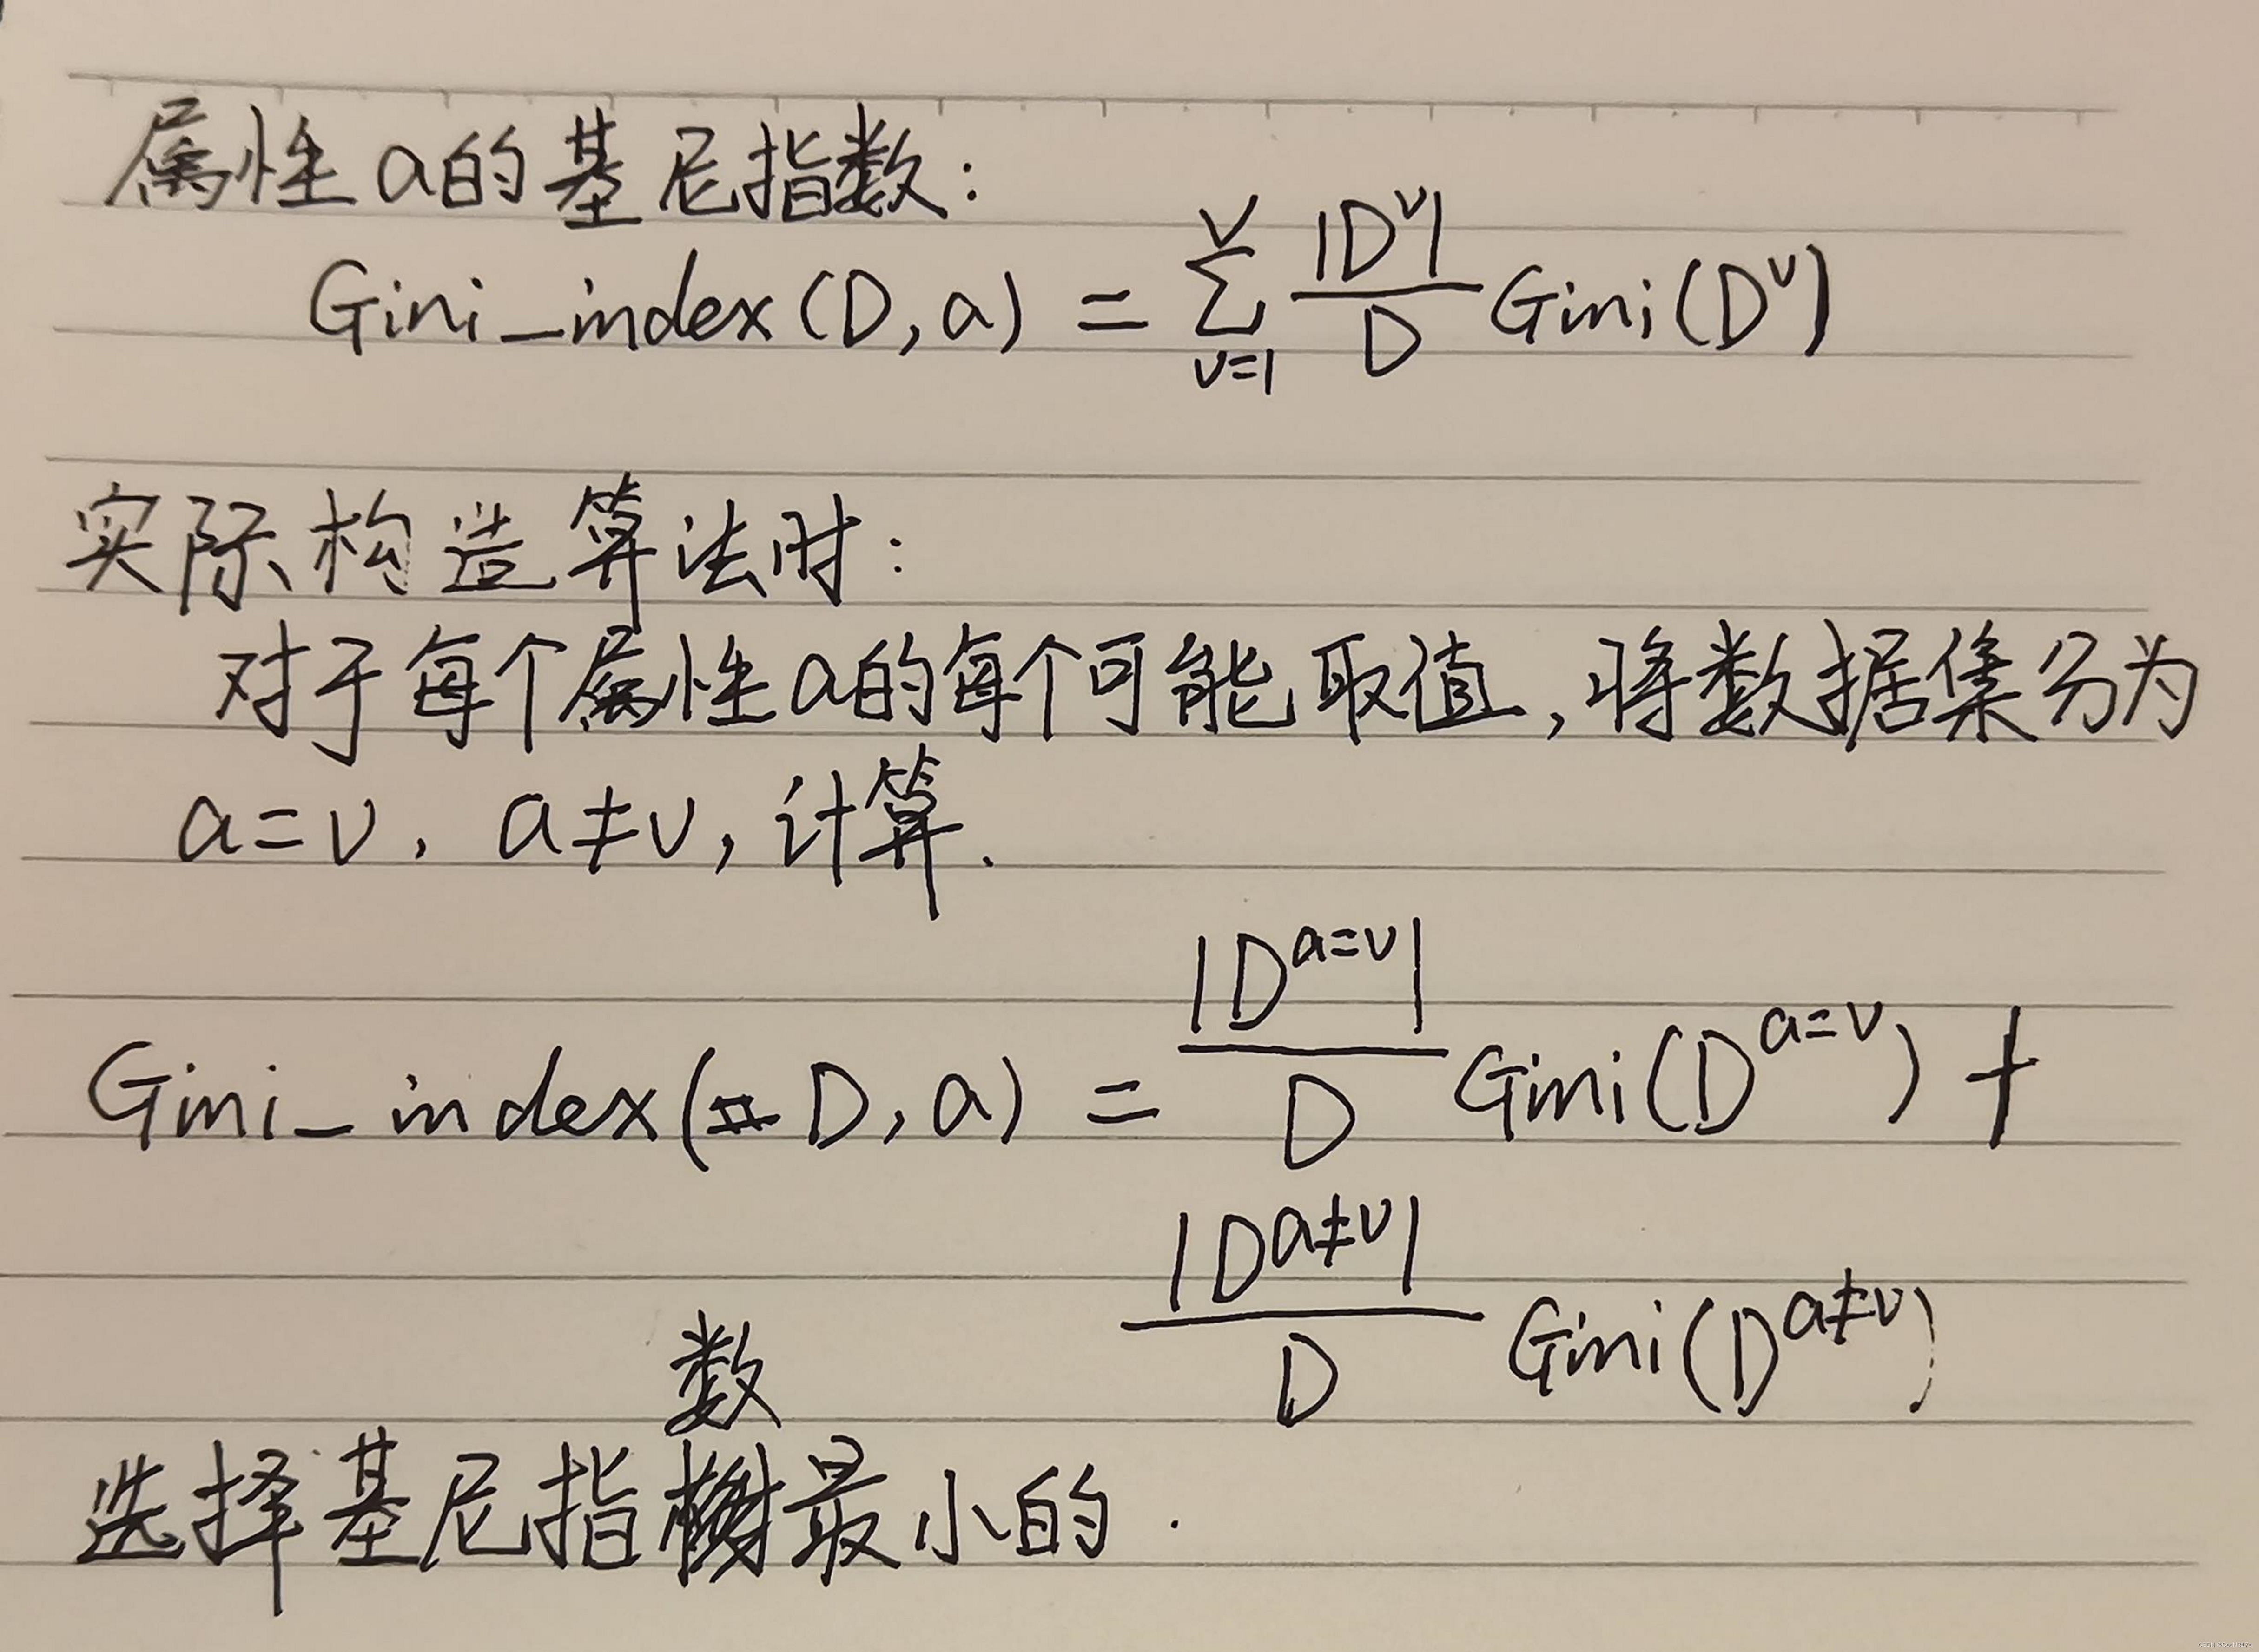 属性a的基尼指数:
Gini_index(D,a) = \sum_{v=1}^{V} \frac{|D^v|}{D} Gini(D^v)
实际构造算法时:
对于每个属性a的每个可能取值,将数据集分为
a=v, a≠v,计算.
Gini_index(D,a) = \frac{|D^{a=v}|}{D} Gini(D^{a=v}) +
\frac{|D^{a≠v}|}{D} Gini(D^{a≠v})
选择基尼指数最小的.